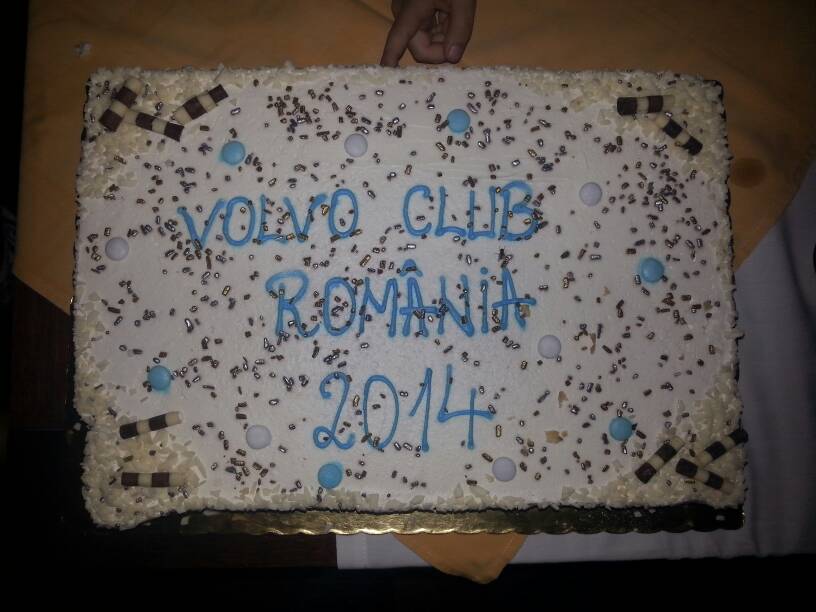 VOLVO CLUB
ROMÂNiA
2014